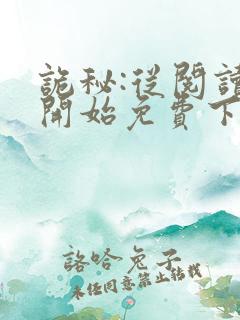 詭秘:從閱讀
開始免費下
詻哈兔子
未經同意禁止轉載